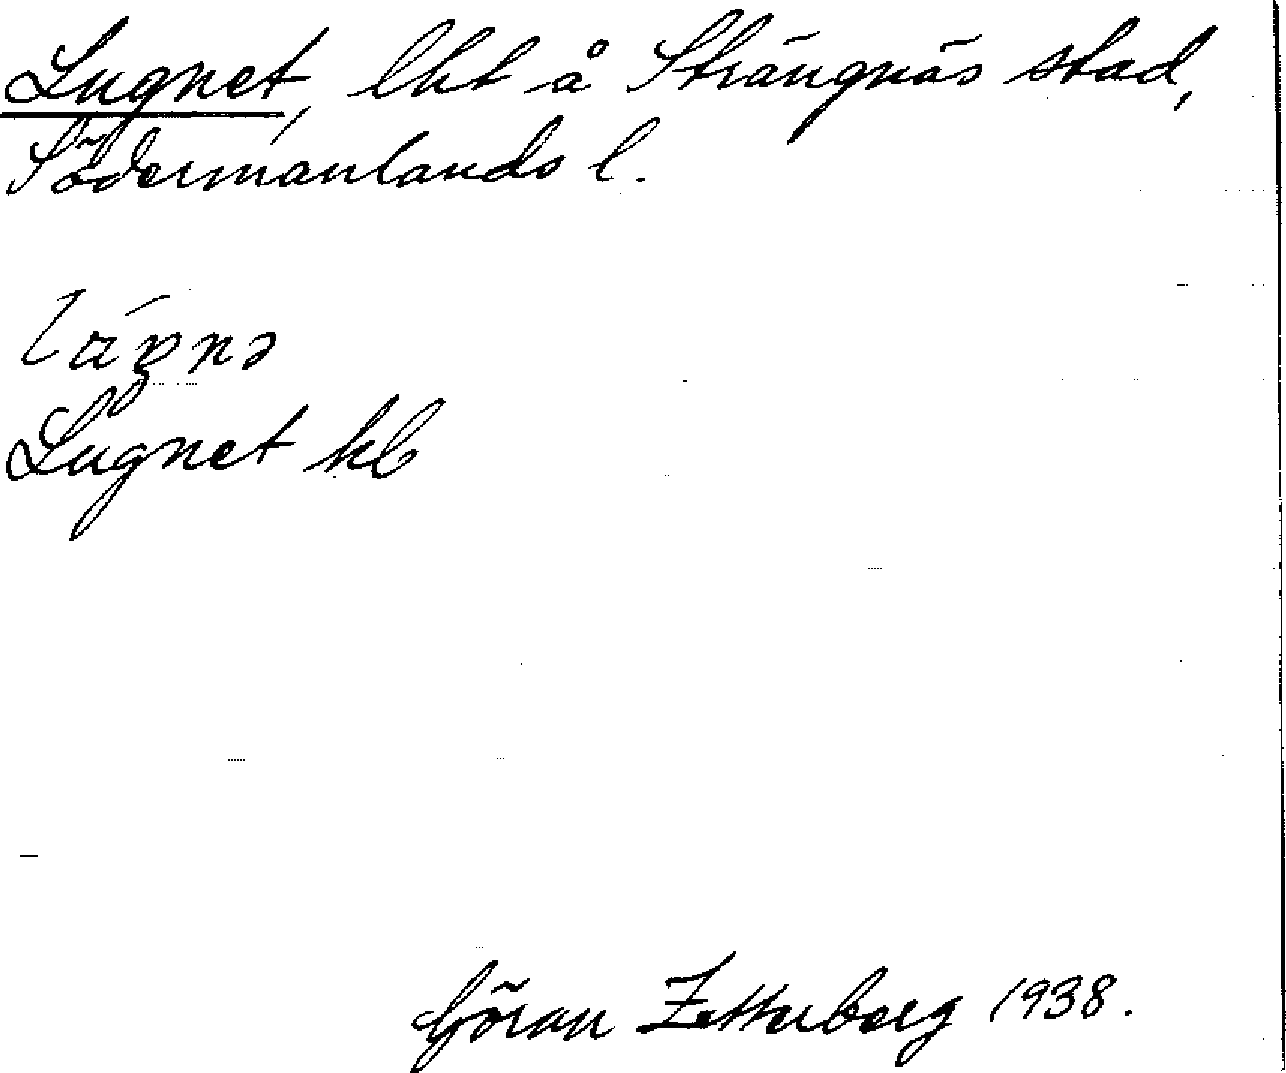 Lugnet, lht å Strängnäs stad,
Södermanlands l.
Lugnet kb
Göran Zetterberg 1938.